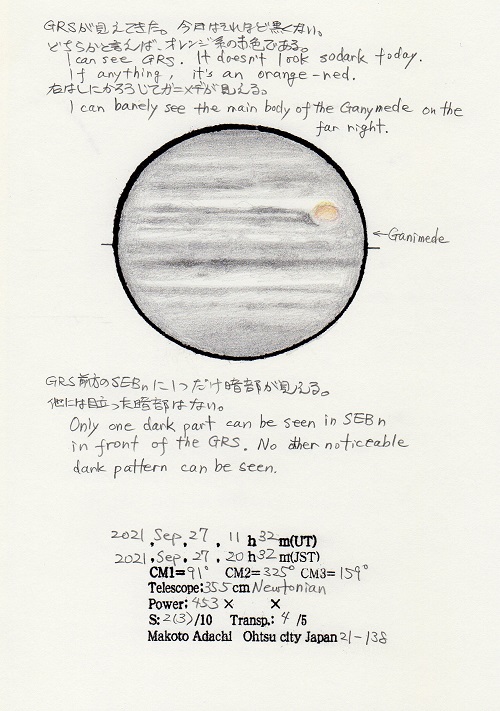 GRSが見えてきた。今日はそれほど黒くない。
どちらかと言えば、オレンジ系の赤色である。
I can see GRS. It doesn't look sodark today.
If anything, it's an orange-red.
右はしにかろうじてガニメデが見える。
I can barely see the main body of the Ganymede on the
far right.
←Ganimede
GRS前方のSEBnに1つだけ暗部が見える。
他には目立った暗部はない。
Only one dark part can be seen in SEBn
in front of the GRS. No other noticeable
dark pattern can be seen.
2021,Sep,27, 11h32m(UT)
2021,Sep,27, 20h32m(JST)
CM1=91° CM2=325° CM3=159°
Telescope:35.5cm Newtonian
Power:453× ×
S:2(3)/10 Transp.:4/5
Makoto Adachi Ohtsu city Japan 21-138